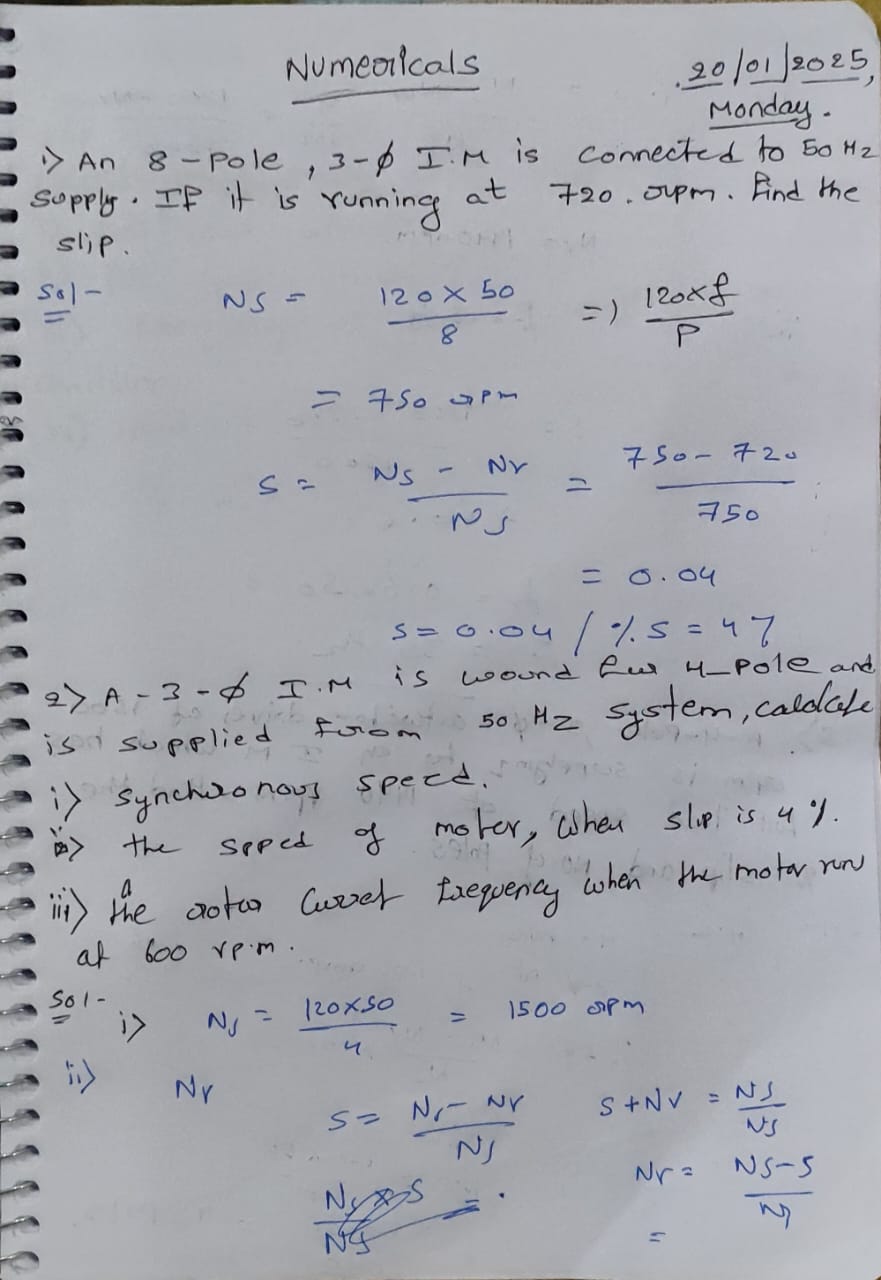 Numericals
20/01/2025,
Monday.
1> An 8-pole, 3-ϕ I.M is connected to 50 Hz
supply. If it is running at 720 rpm. Find the
slip.
Sol- Ns = 120 x 50 / 8 => 120xf / P
= 750 rpm
S = Ns - Nr / Ns = 750 - 720 / 750
= 0.04
S = 0.04 / % S = 4%
2> A-3-ϕ I.M is wound for 4-pole and
is supplied from 50 Hz system, calculate
i> synchronous speed.
ii> the speed of motor, when slip is 4%.
iii> the rotor curret frequency when the motor run
at 600 rp.m.
Sol- i> Ns = 120x50 / 4 = 1500 rpm
ii> Nr
S = Ns - Nr / Ns S + Nr = Ns / Ns
Nr = Ns - S / Ns
=